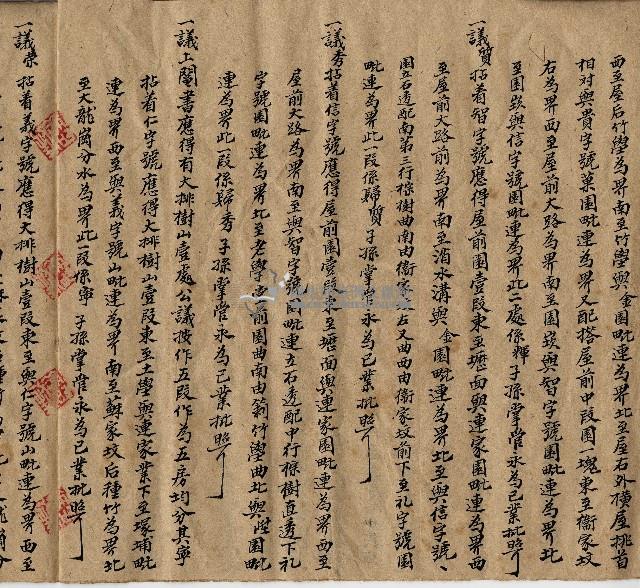 西至屋后竹𡒊為界南至竹𡒊與金園毗連為界至屋右外橫屋排首
相对與貴字號菓園毗連為界又配搭屋前中段園一塊東至衞家坟
右為界西至屋前大路為界南至園崁與智字號園毗連為界北
至園崁與信字號園毗連為界此二處係輝子孫掌管永為己業批照
一議質拈着智字號應得屋前園壹段東至壢面與連家園毗連為界西
至屋前大路前為界南至消水溝與金園毗連為界北至與信字號
園立石透配南第三行樑樹曲南由衞家坟左又曲西由衞家坟前下至礼字號園
毗連為界此一段係歸質子孫掌管永為己業批照
一議秀拈着信字號應得屋前園壹段東至壢面與連家園毗連為界西至
屋前大路為界南至與智字號園毗連立石透配中行樑樹直透下礼
字號園毗連為界北至老學堂前園曲南由箣竹𡒊曲北與园毗
連為界此段係歸秀子孫掌管永為己業批照
一議上鬮書應得有大排樹山壹處公議按作五段作為五房均分其寧
拈着仁字號應得大排樹山壹段東至土𡒊與連家業下至塚埔毗
連為界西至與義字號山毗連為界南至蘇家坟后種竹為界北
至大龍崗分水為界此段係寧子孫掌管永為己業批照
一議崇拈着義字號應得大排樹山壹段東至與仁字號山毗連為界西至